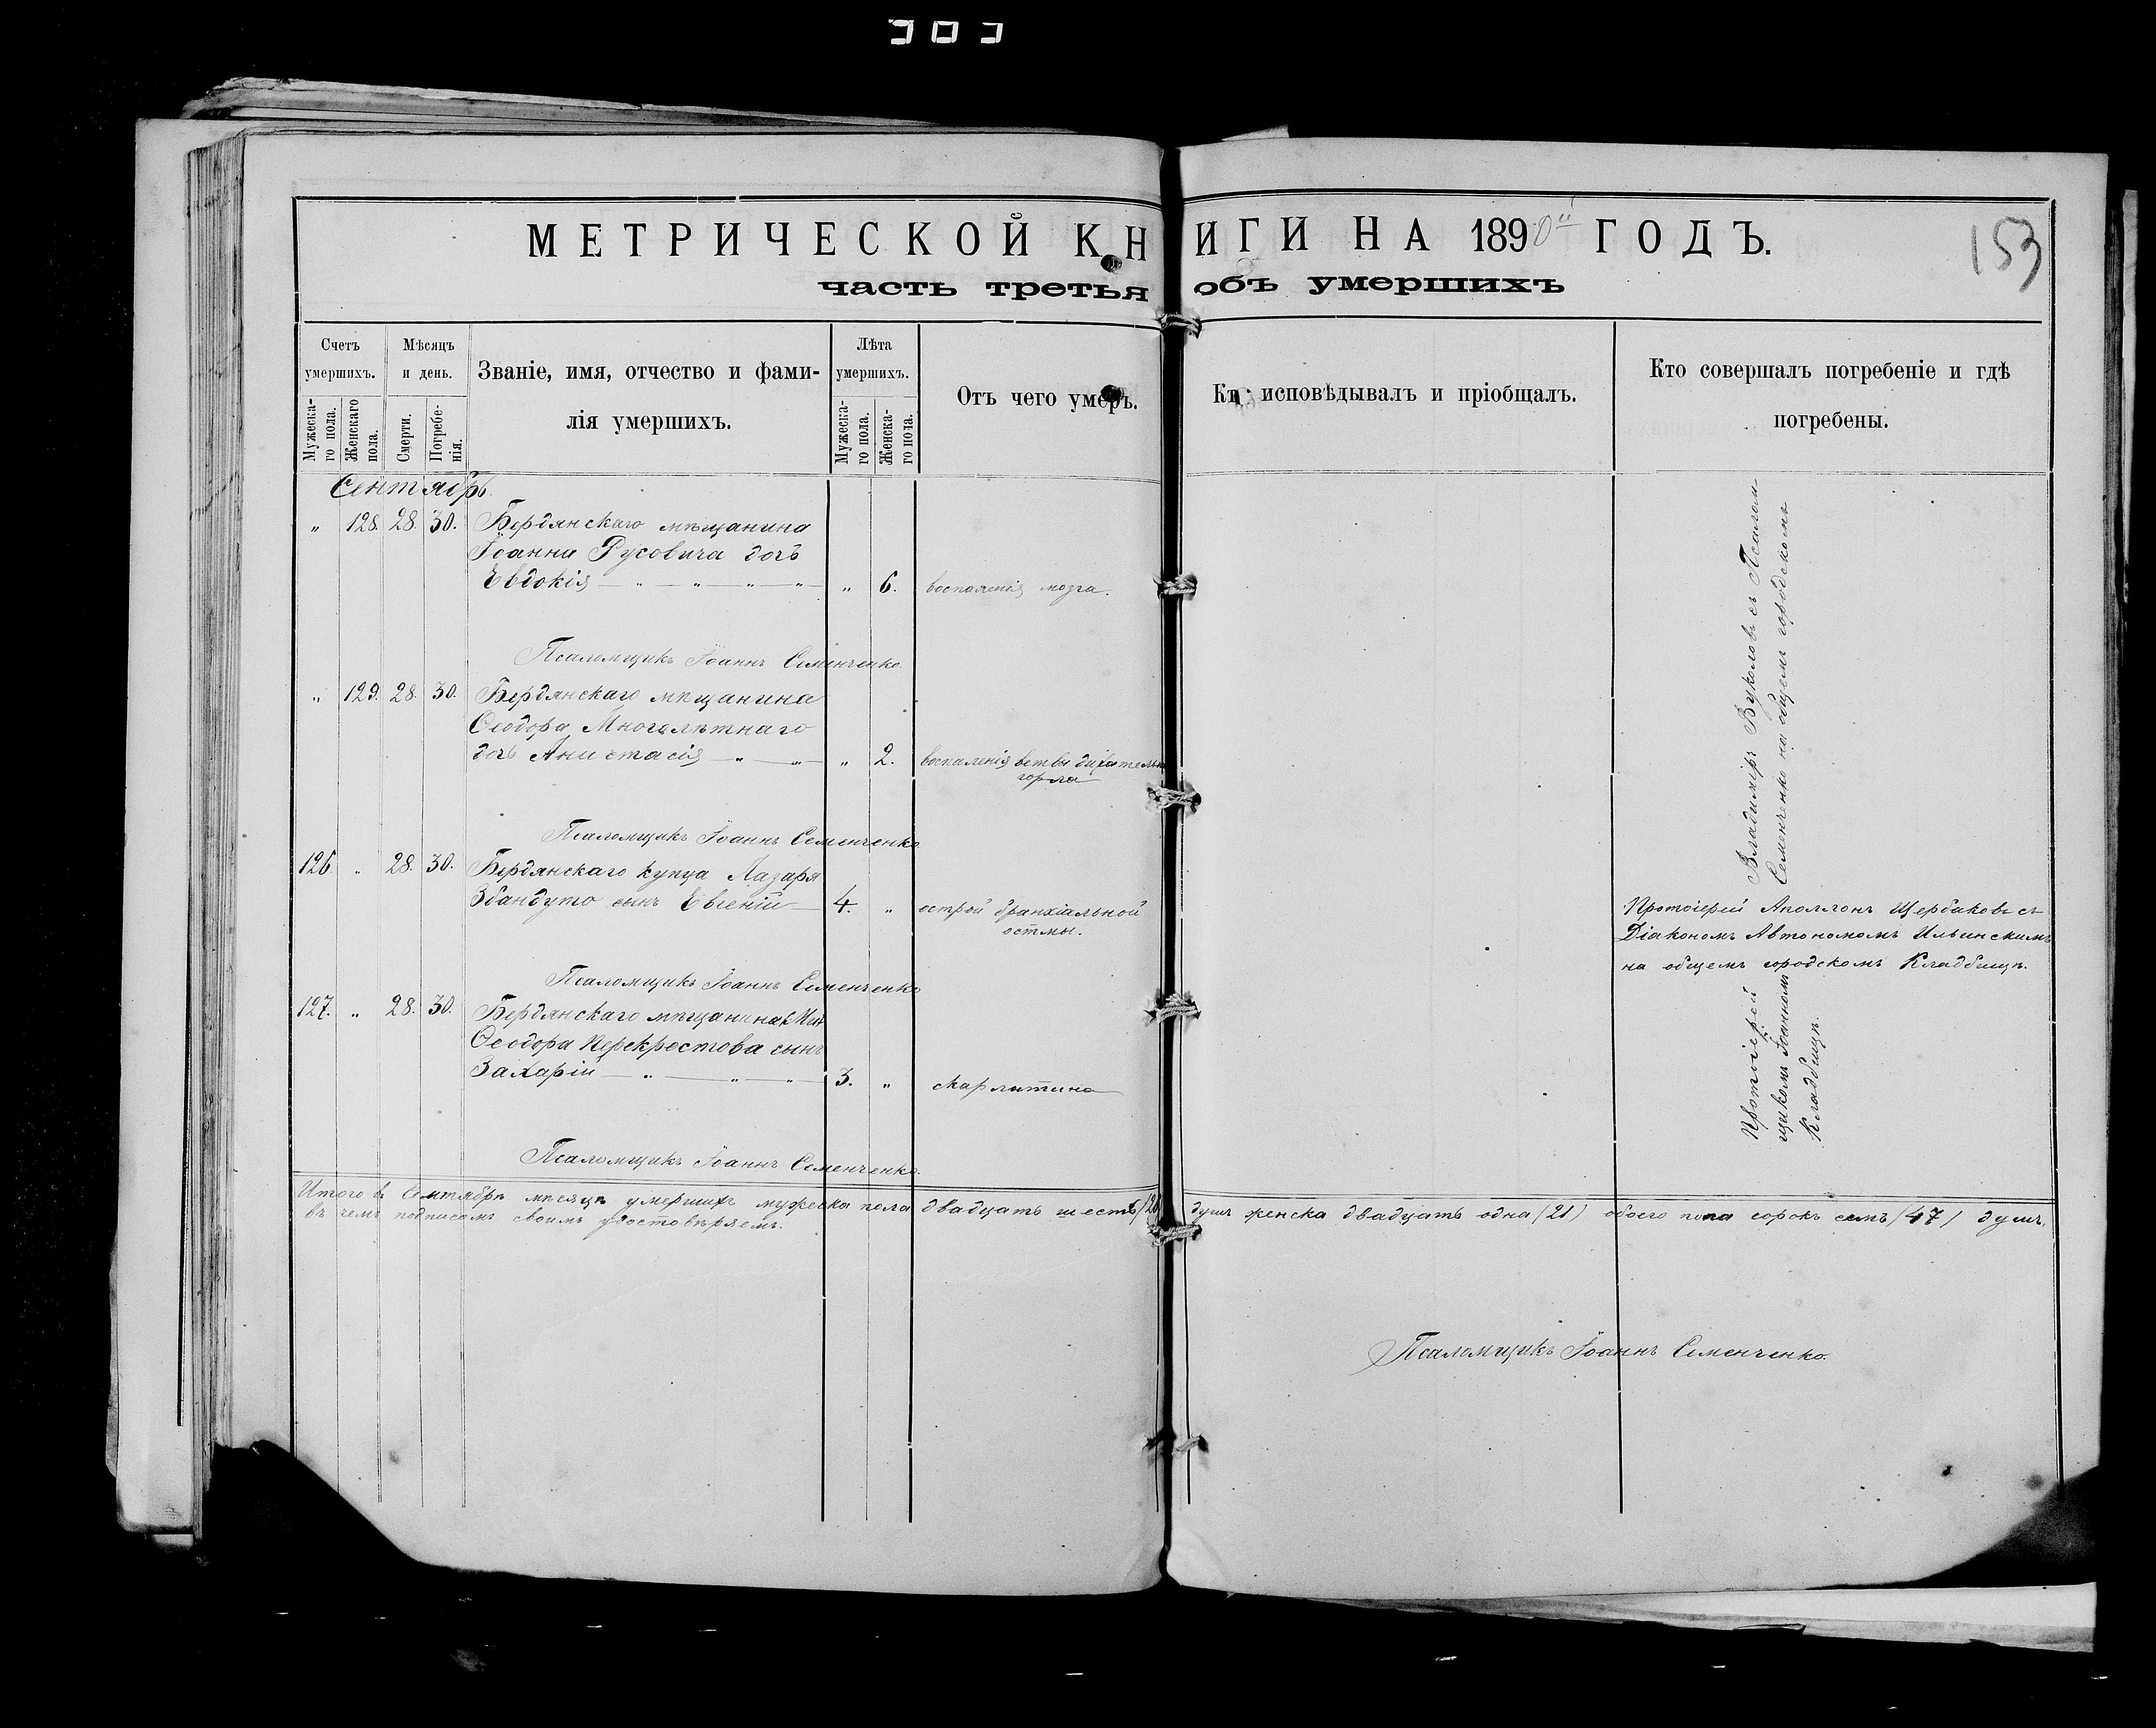 МЕТРИЧЕСКОЙ КНИГИ НА 1890й ГОДЪ.
153
часть третья объ умершихъ
Счетъ умершихъ.
Мужеска-го пола.
Женскаго пола.
Мѣсяцъ и день.
Смерти.
Погребе-нія.
Званіе, имя, отчество и фами-
лія умершихъ.
Лѣта умершихъ.
Мужеска-го пола.
Женска-го пола.
Отъ чего умеръ.
Кто исповѣдывалъ и пріобщалъ.
Кто совершалъ погребеніе и гдѣ
погребены.
Сентябрь.
„ 128. 28. 30. Бердянскаго мѣщанина
Іоанна Русовича дочь
Евдокія — „ — „ — „ — „ — „ 6. воспаленія мозга.
Псаломщикъ Іоаннъ Семенченко.
„ 129. 28. 30. Бердянскаго мѣщанина
Ѳеодора Многолѣтнаго
дочь Анастасія — „ — „ — „ 2. воспаленія вѣтвы дихательн
горла
Псаломщикъ Іоаннъ Семенченко
126. „ 28. 30. Бердянскаго купца Лазаря
Збандуто сынъ Евгеній — 4. „ острой бранхіальной
остмы.
Протоіерей Аполлонъ Щербаковъ съ
Діакономъ Автономомъ Ильинскимъ
на общемъ городскомъ Кладбищѣ.
Псаломщикъ Іоаннъ Семенченко
127. „ 28. 30. Бердянскаго мѣщанина
Ѳеодора Перекрестова сынъ
Захарій — „ — „ — „ — 3. „ скарлатина
Псаломщикъ Іоаннъ Семенченко.
Протоіерей Владиміръ Вуколовъ съ Псалом-
щикомъ Іоанномъ Семенченко на общемъ городскомъ
Кладбищѣ.
Итого въ Сентябрѣ мѣсяцѣ умершихъ мужеска пола двадцать шесть /26 душъ женска двадцать одна /21/ обоего пола сорокъ семъ /47/ душъ,
въ чемъ подписомъ своимъ удостовѣряемъ.
Псаломщикъ Іоаннъ Семенченко.